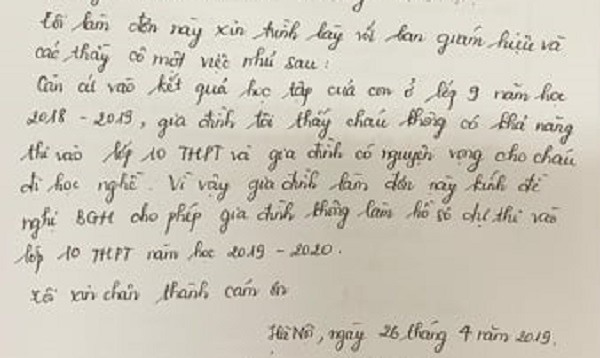 Tôi làm đơn này xin trình bày với ban giám hiệu và
các thầy cô một việc như sau:
Căn cứ vào kết quả học tập của con ở lớp 9 năm học
2018 - 2019, gia đình tôi thấy cháu không có khả năng
thi vào lớp 10 THPT và gia đình có nguyện vọng cho cháu
đi học nghề. Vì vậy gia đình làm đơn này kính đề
nghị BGH cho phép gia đình không làm hồ sơ dự thi vào
lớp 10 THPT năm học 2019 - 2020.
Tôi xin chân thành cám ơn
Hà Nội, ngày 26 tháng 4 năm 2019.